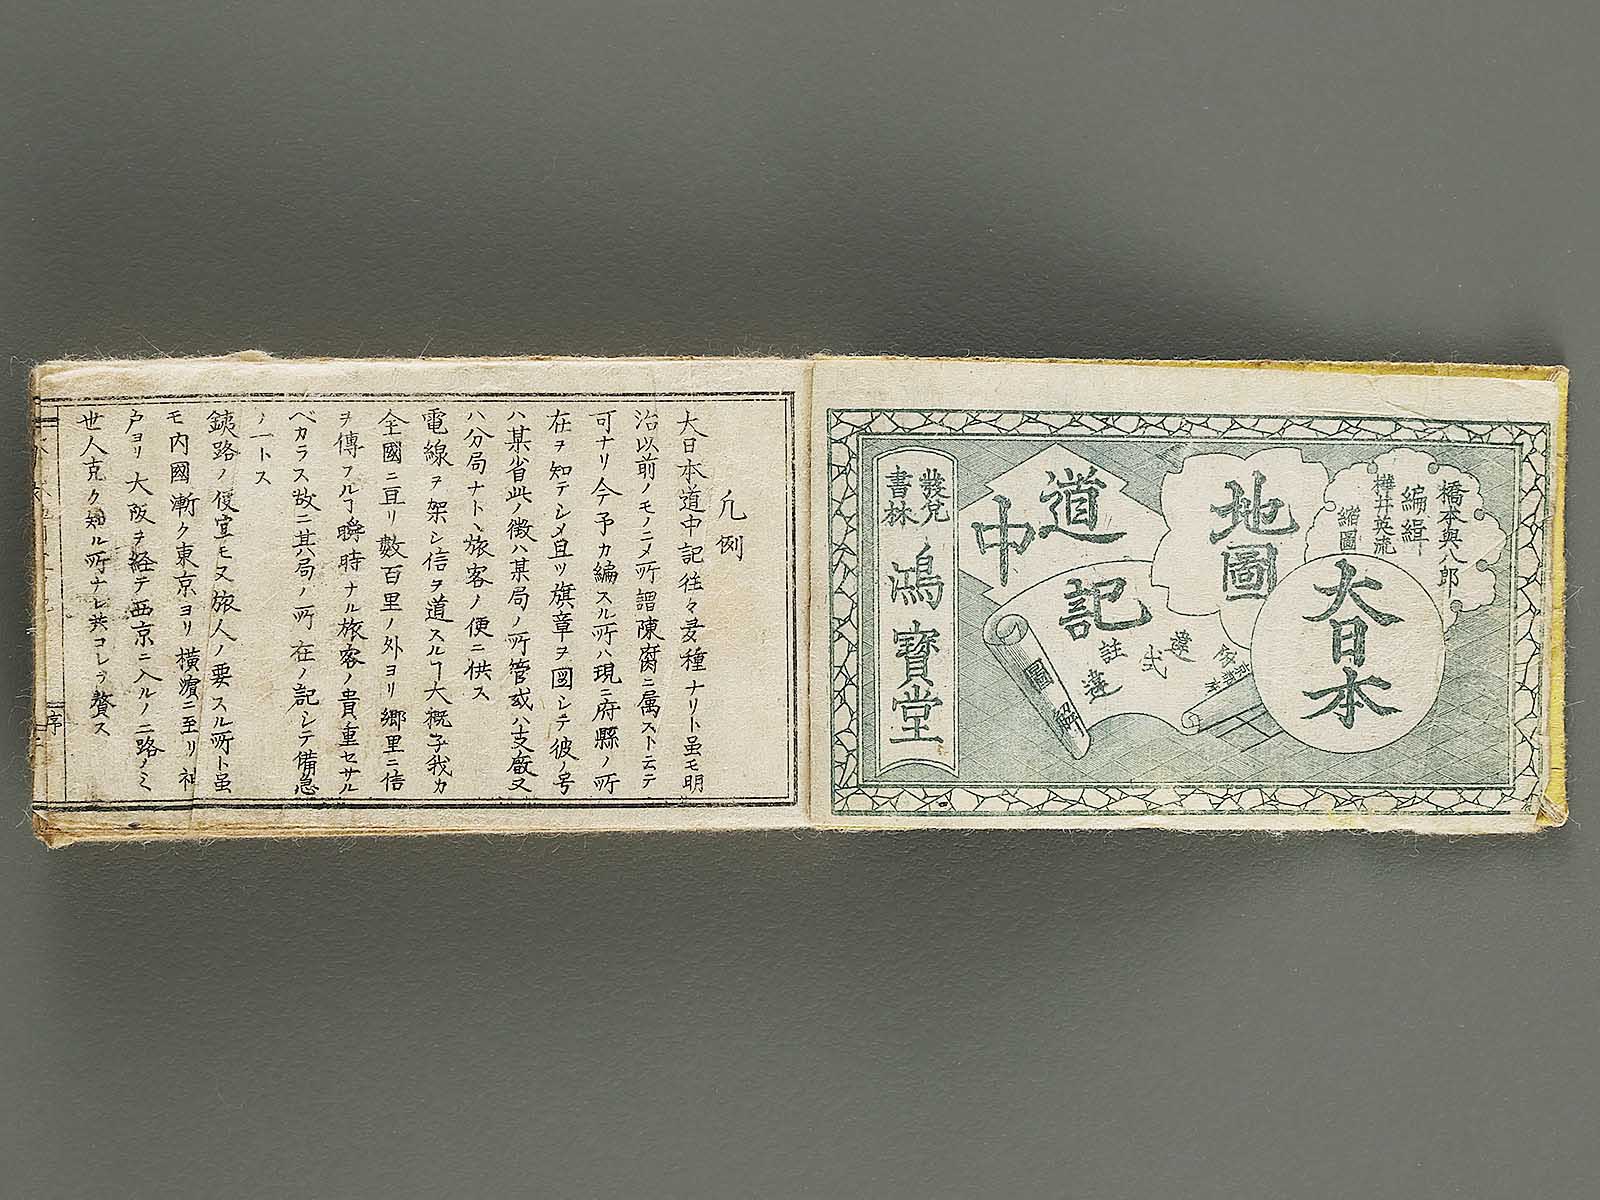 橋本與八郎
編緝
樺井英流
縮圖
大日本
地圖
道中
記
圖解
發兌
書林
鴻寶堂
凡例
大日本道中記往々多種ナリト虽モ明
治以前ノモノニメ所謂陳腐ニ属スト云テ
可ナリ今予カ編スル所ハ現ニ府縣ノ所
在ヲ知テシメ且ツ旗章ヲ図シテ彼ノ号
ハ某省此ノ徴ハ某局ノ所管或ハ支廠又
ハ分局ナト丶旅客ノ便ニ供ス
電線ヲ架シ信ヲ道スルヿ大概子我カ
全國ニ亘リ數百里ノ外ヨリ郷里ニ信
ヲ傳フルヿ瞬時ナル旅客ノ貴重セサル
ベカラス故ニ其局ノ所在ノ記シテ備急
ノ一トス
銕路ノ便宜モ又旅人ノ要スル所ト虽
モ内國漸ク東京ヨリ横濱ニ至リ神
戸ヨリ大阪ヲ経テ西京ニ入ルノ二路ノミ
世人克ク知ル所ナレ共コレヲ贅ス
序